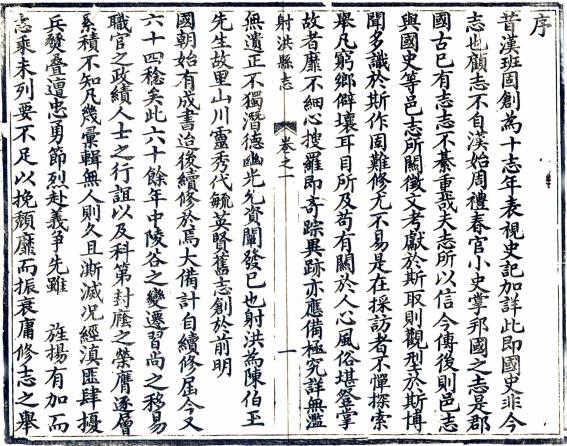 序
昔漢班固創為十志年表視史記加詳此即國史非今
志也顧志不自漢始周禮春官小史掌邦國之志是郡
國古已有志志不綦重哉夫志所以信今傳後則邑志
與國史等邑志所關徵文考獻於斯取則觀型於斯博
聞多識於斯作固難修尤不易是在採訪者不憚探索
舉凡窮鄉僻壤耳目所及苟有關於人心風俗堪登掌
故者靡不細心搜羅即奇踪異跡亦應備極究詳無濫
射洪縣志
卷之一
一
無遺正不獨潛德幽光先資闡發已也射洪為陳伯玉
先生故里山川靈秀代毓英賢舊志創於前明
國朝始有成書迨後續修於焉大備計自續修屆今又
六十四稔矣此六十餘年中陵谷之變遷習尚之移易
職官之政績人士之行誼以及科第封廕之榮膺逐層
累積不知凡幾彙輯無人則久且漸滅況經滇匪肆擾
兵燹疊遭忠勇節烈赴義爭先雖 旌揚有加而
志乘未列要不足以挽頹靡而振衰庸修志之舉